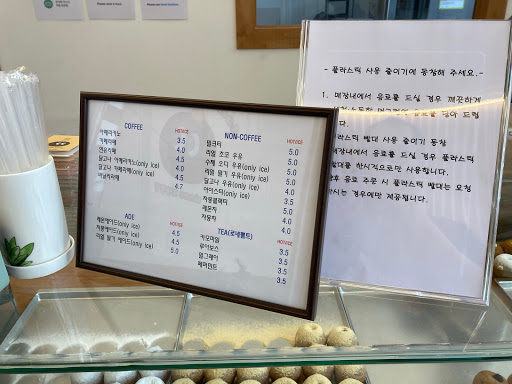 COFFEE HOT/ICE
아메리카노 3.5
카페라떼 4.0
연유라떼 4.5
달고나 아메리카노(only ice) 4.5
달고나 카페라떼(only ice)
바닐라라떼 4.7
ADE HOT/ICE
레몬에이드(only ice) 4.5
자몽에이드(only ice) 4.5
리얼 딸기 에이드(only ice) 5.0
NON-COFFEE HOT/ICE
밀크티 5.0
리얼 초코 우유 5.0
수제 오디 우유(only ice) 5.0
리얼 딸기 우유(only ice)
달고나 우유(only ice)
아이스티(only ice)
자몽블랙티
레몬차
자몽차
TEA(로네펠트) HOT/ICE
카모마일 3.5
루이보스 3.5
얼그레이 3.5
페퍼민트 3.5
- 플라스틱 사용 줄이기에 동참해 주세요. -
1. 매장내에서 음료를 드실 경우 깨끗하게
음료를 담아 드립
니다.
플라스틱 빨대 사용 줄이기 동참
매장내에서 음료를 드실 경우 플라스틱
빨대를 한시적으로만 사용합니다.
이후 음료 주문 시 플라스틱 빨대는 요청
하시는 경우에만 제공됩니다.